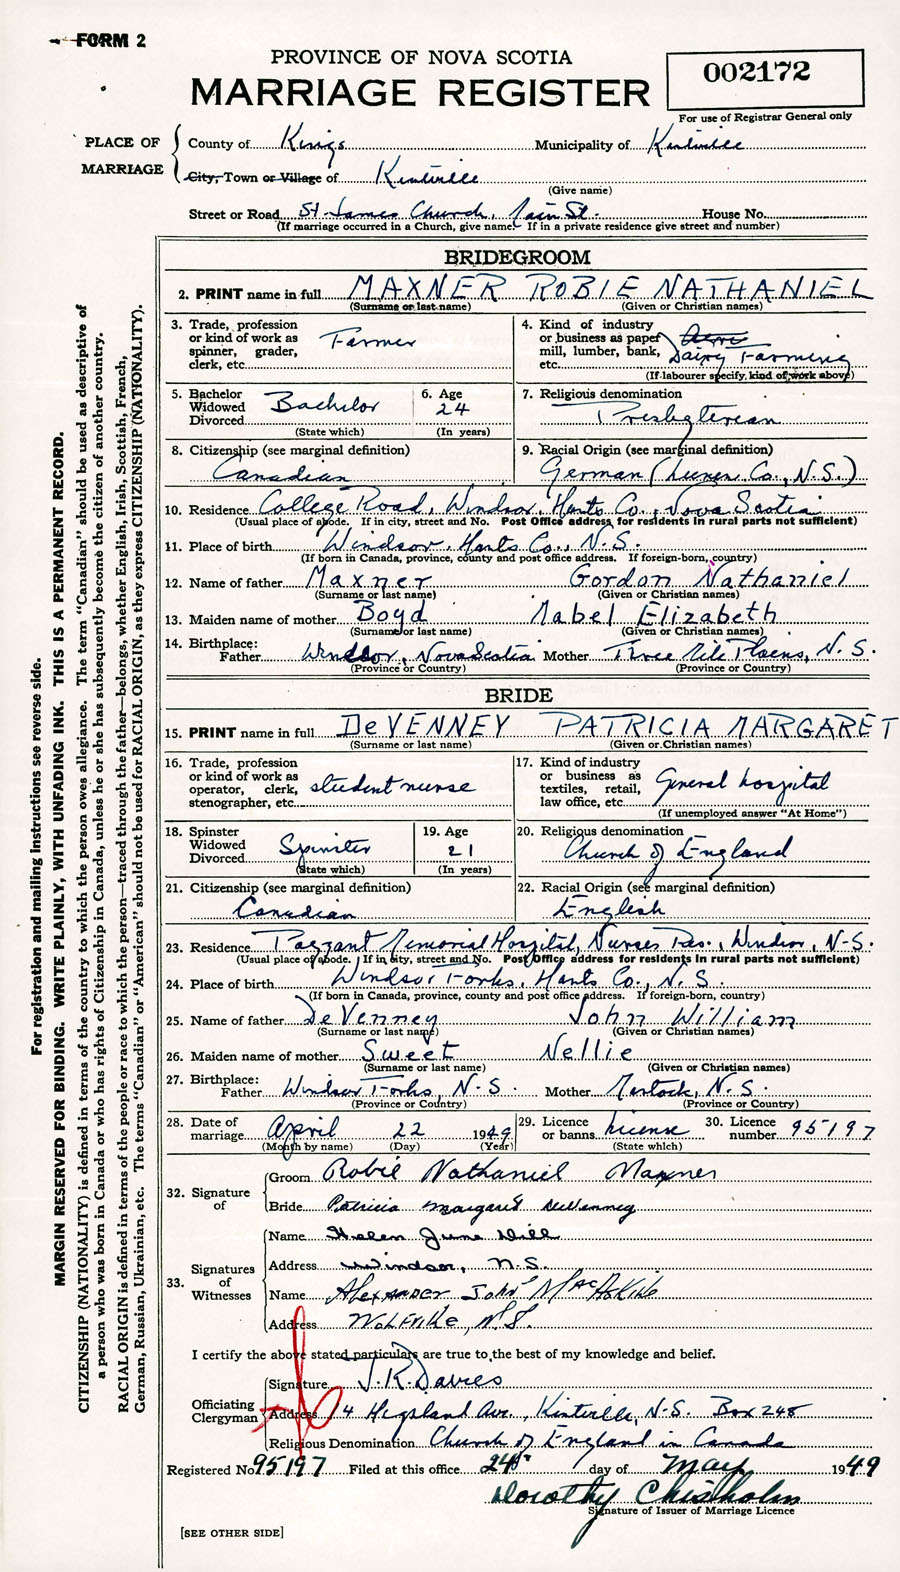 FORM 2
PROVINCE OF NOVA SCOTIA
MARRIAGE REGISTER
002172
For use of Registrar General only
PLACE OF MARRIAGE
County of Kings Municipality of Kentville
City, Town or Village of Kentville
(Give name)
Street or Road St. James Church, Main St. House No.
(If marriage occurred in a Church, give name. If in a private residence give street and number)
BRIDEGROOM
2. PRINT name in full MAXNER ROBIE NATHANIEL
(Surname or last name) (Given or Christian names)
3. Trade, profession or kind of work as spinner, grader, clerk, etc. Farmer
4. Kind of industry or business as paper mill, lumber, bank, etc. Dairy Farming
(If labourer specify kind of work above)
5. Bachelor Widowed Divorced Bachelor
(State which)
6. Age 24
(In years)
7. Religious denomination
Presbyterian
8. Citizenship (see marginal definition)
Canadian
9. Racial Origin (see marginal definition)
German (Lunen. Co., N.S.)
10. Residence College Road, Windsor, Hants Co., Nova Scotia
(Usual place of abode. If in city, street and No. Post Office address for residents in rural parts not sufficient)
11. Place of birth Windsor, Hants Co., N.S.
(If born in Canada, province, county and post office address. If foreign-born, country)
12. Name of father Maxner Gordon Nathaniel
(Surname or last name) (Given or Christian names)
13. Maiden name of mother Boyd Mabel Elizabeth
(Surname or last name) (Given or Christian names)
14. Birthplace:
Father Windsor, Nova Scotia Mother Three Mile Plains, N.S.
(Province or Country) (Province or Country)
BRIDE
15. PRINT name in full DeVENNEY PATRICIA MARGARET
(Surname or last name) (Given or Christian names)
16. Trade, profession or kind of work as operator, clerk, stenographer, etc. student nurse
17. Kind of industry or business as textiles, retail, law office, etc. General hospital
(If unemployed answer "At Home")
18. Spinster Widowed Divorced Spinster
(State which)
19. Age 21
(In years)
20. Religious denomination
Church of England
21. Citizenship (see marginal definition)
Canadian
22. Racial Origin (see marginal definition)
English
23. Residence Payzant Memorial Hospital, Nurses Res., Windsor, N.S.
(Usual place of abode. If in city, street and No. Post Office address for residents in rural parts not sufficient)
24. Place of birth Windsor Forks, Hants Co., N.S.
(If born in Canada, province, county and post office address. If foreign-born, country)
25. Name of father DeVenney John William
(Surname or last name) (Given or Christian names)
26. Maiden name of mother Sweet Nellie
(Surname or last name) (Given or Christian names)
27. Birthplace:
Father Windsor Forks, N.S. Mother Martock, N.S.
(Province or Country) (Province or Country)
28. Date of marriage April 22 1949
(Month by name) (Day) (Year)
29. Licence or banns license
(State which)
30. Licence number 95197
32. Signature of
Groom Robie Nathaniel Maxner
Bride Patricia Margaret DeVenney
33. Signatures of Witnesses
Name Helen June Hill
Address Windsor, N.S.
Name Alexander John MacAskill
Address Wolfville, N.S.
I certify the above stated particulars are true to the best of my knowledge and belief.
Officiating Clergyman
Signature J.R. Davies
Address 14 Highland Ave., Kentville, N.S. Box 248
Religious Denomination Church of England in Canada
Registered No 95197 Filed at this office 24th day of May 1949
Dorothy Chisholm
Signature of Issuer of Marriage Licence
[SEE OTHER SIDE]
For registration and mailing instructions see reverse side.
MARGIN RESERVED FOR BINDING. WRITE PLAINLY, WITH UNFADING INK. THIS IS A PERMANENT RECORD.
CITIZENSHIP (NATIONALITY) is defined in terms of the country to which the person owes allegiance. The term "Canadian" should be used as descriptive of
a person who was born in Canada or who has rights of Citizenship in Canada, unless he or she has subsequently become the citizen of another country.
RACIAL ORIGIN is defined in terms of the people or race to which the person—traced through the father—belongs, whether English, Irish, Scottish, French,
German, Russian, Ukrainian, etc. The terms "Canadian" or "American" should not be used for RACIAL ORIGIN, as they express CITIZENSHIP (NATIONALITY).